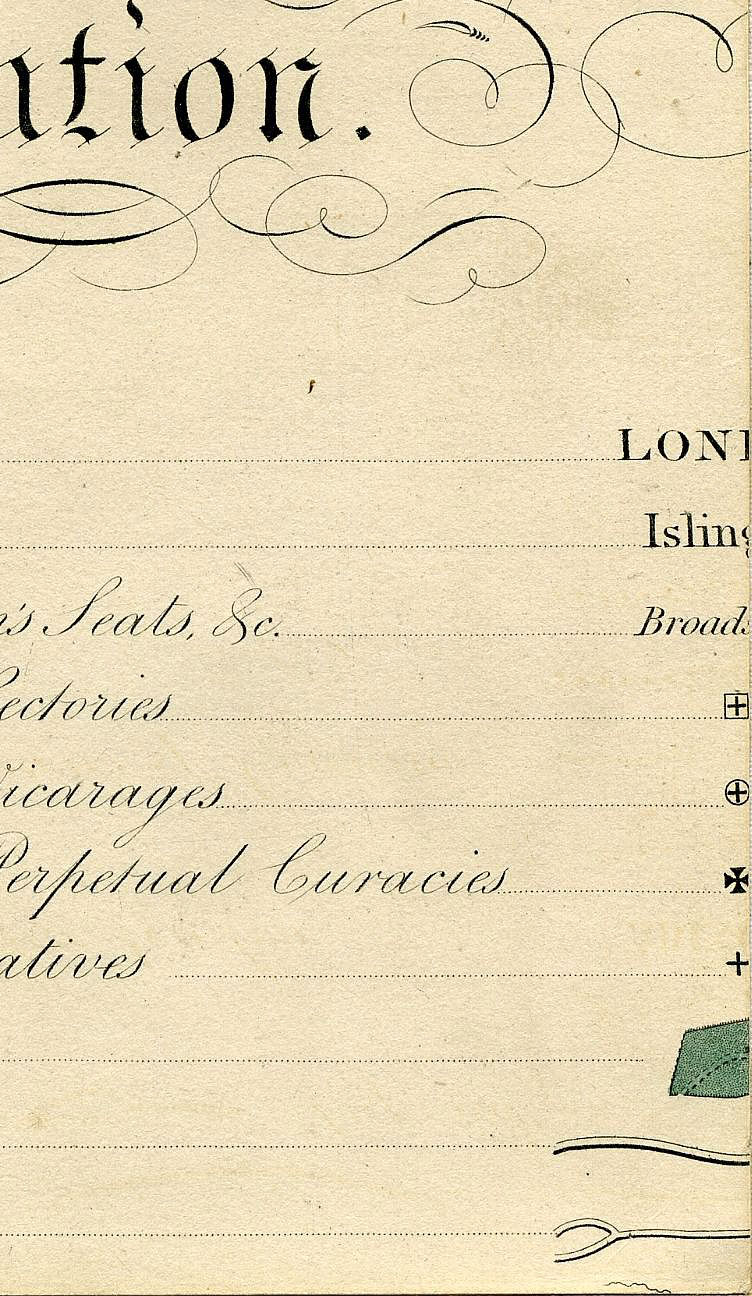 ation.
LON
Isling
's Seats, &c. Broads
ectories
icarages
Perpetual Curacies
atives